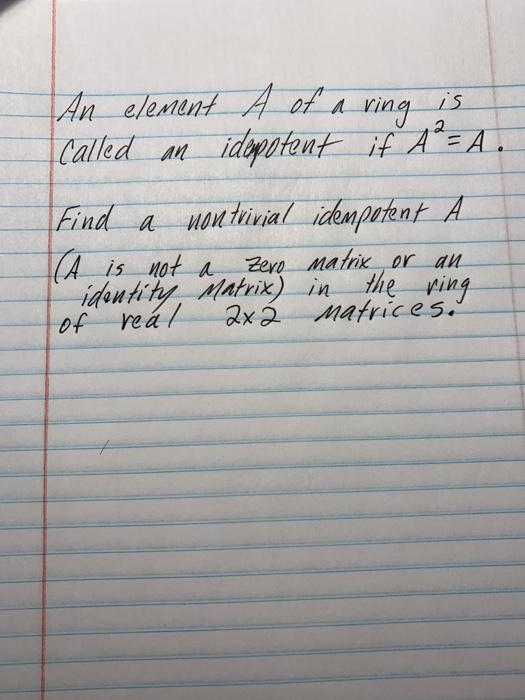 An element A of a ring is
Called an idepotent if A²=A.
Find a nontrivial idempotent A
(A is not a zero matrix or an
identity Matrix) in the ring
of real 2x2 Matrices.